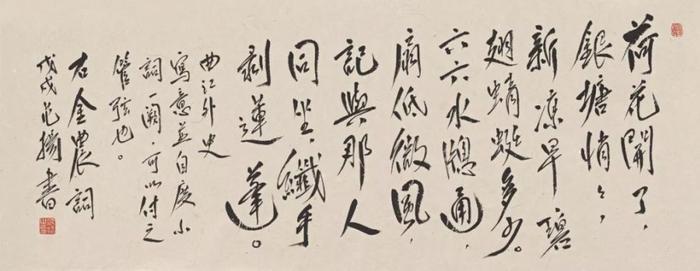 荷花開了，
銀塘悄々，
新涼早 碧
翅蜻蜓多少。
六六水牕通，
扇低微風，
記與那人
同坐，纖手
剥蓮蓬。
曲江外史
寫意並自度小
詞一闋，可以付之
管弦也。
右金農詞
戊戌范揚書